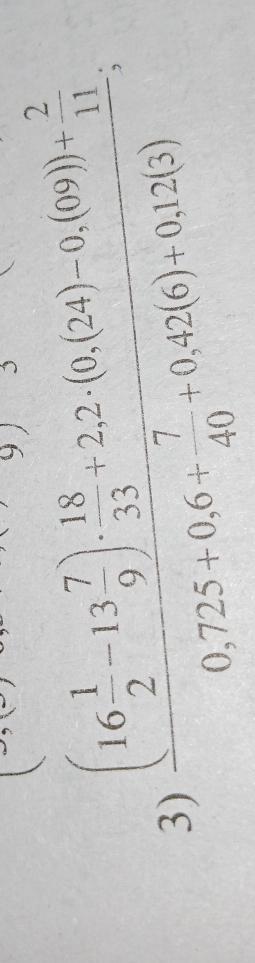 3) \frac{\left(16\frac{1}{2}-13\frac{7}{9}\right)\cdot\frac{18}{33}+2,2\cdot(0,(24)-0,(09))+\frac{2}{11}}{0,725+0,6+\frac{7}{40}+0,42(6)+0,12(3)};